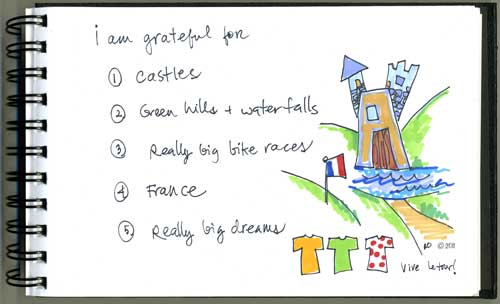 i am grateful for
① castles
② Green hills + waterfalls
③ Really big bike races
④ France
⑤ Really big dreams
© 2011
Vive le tour!